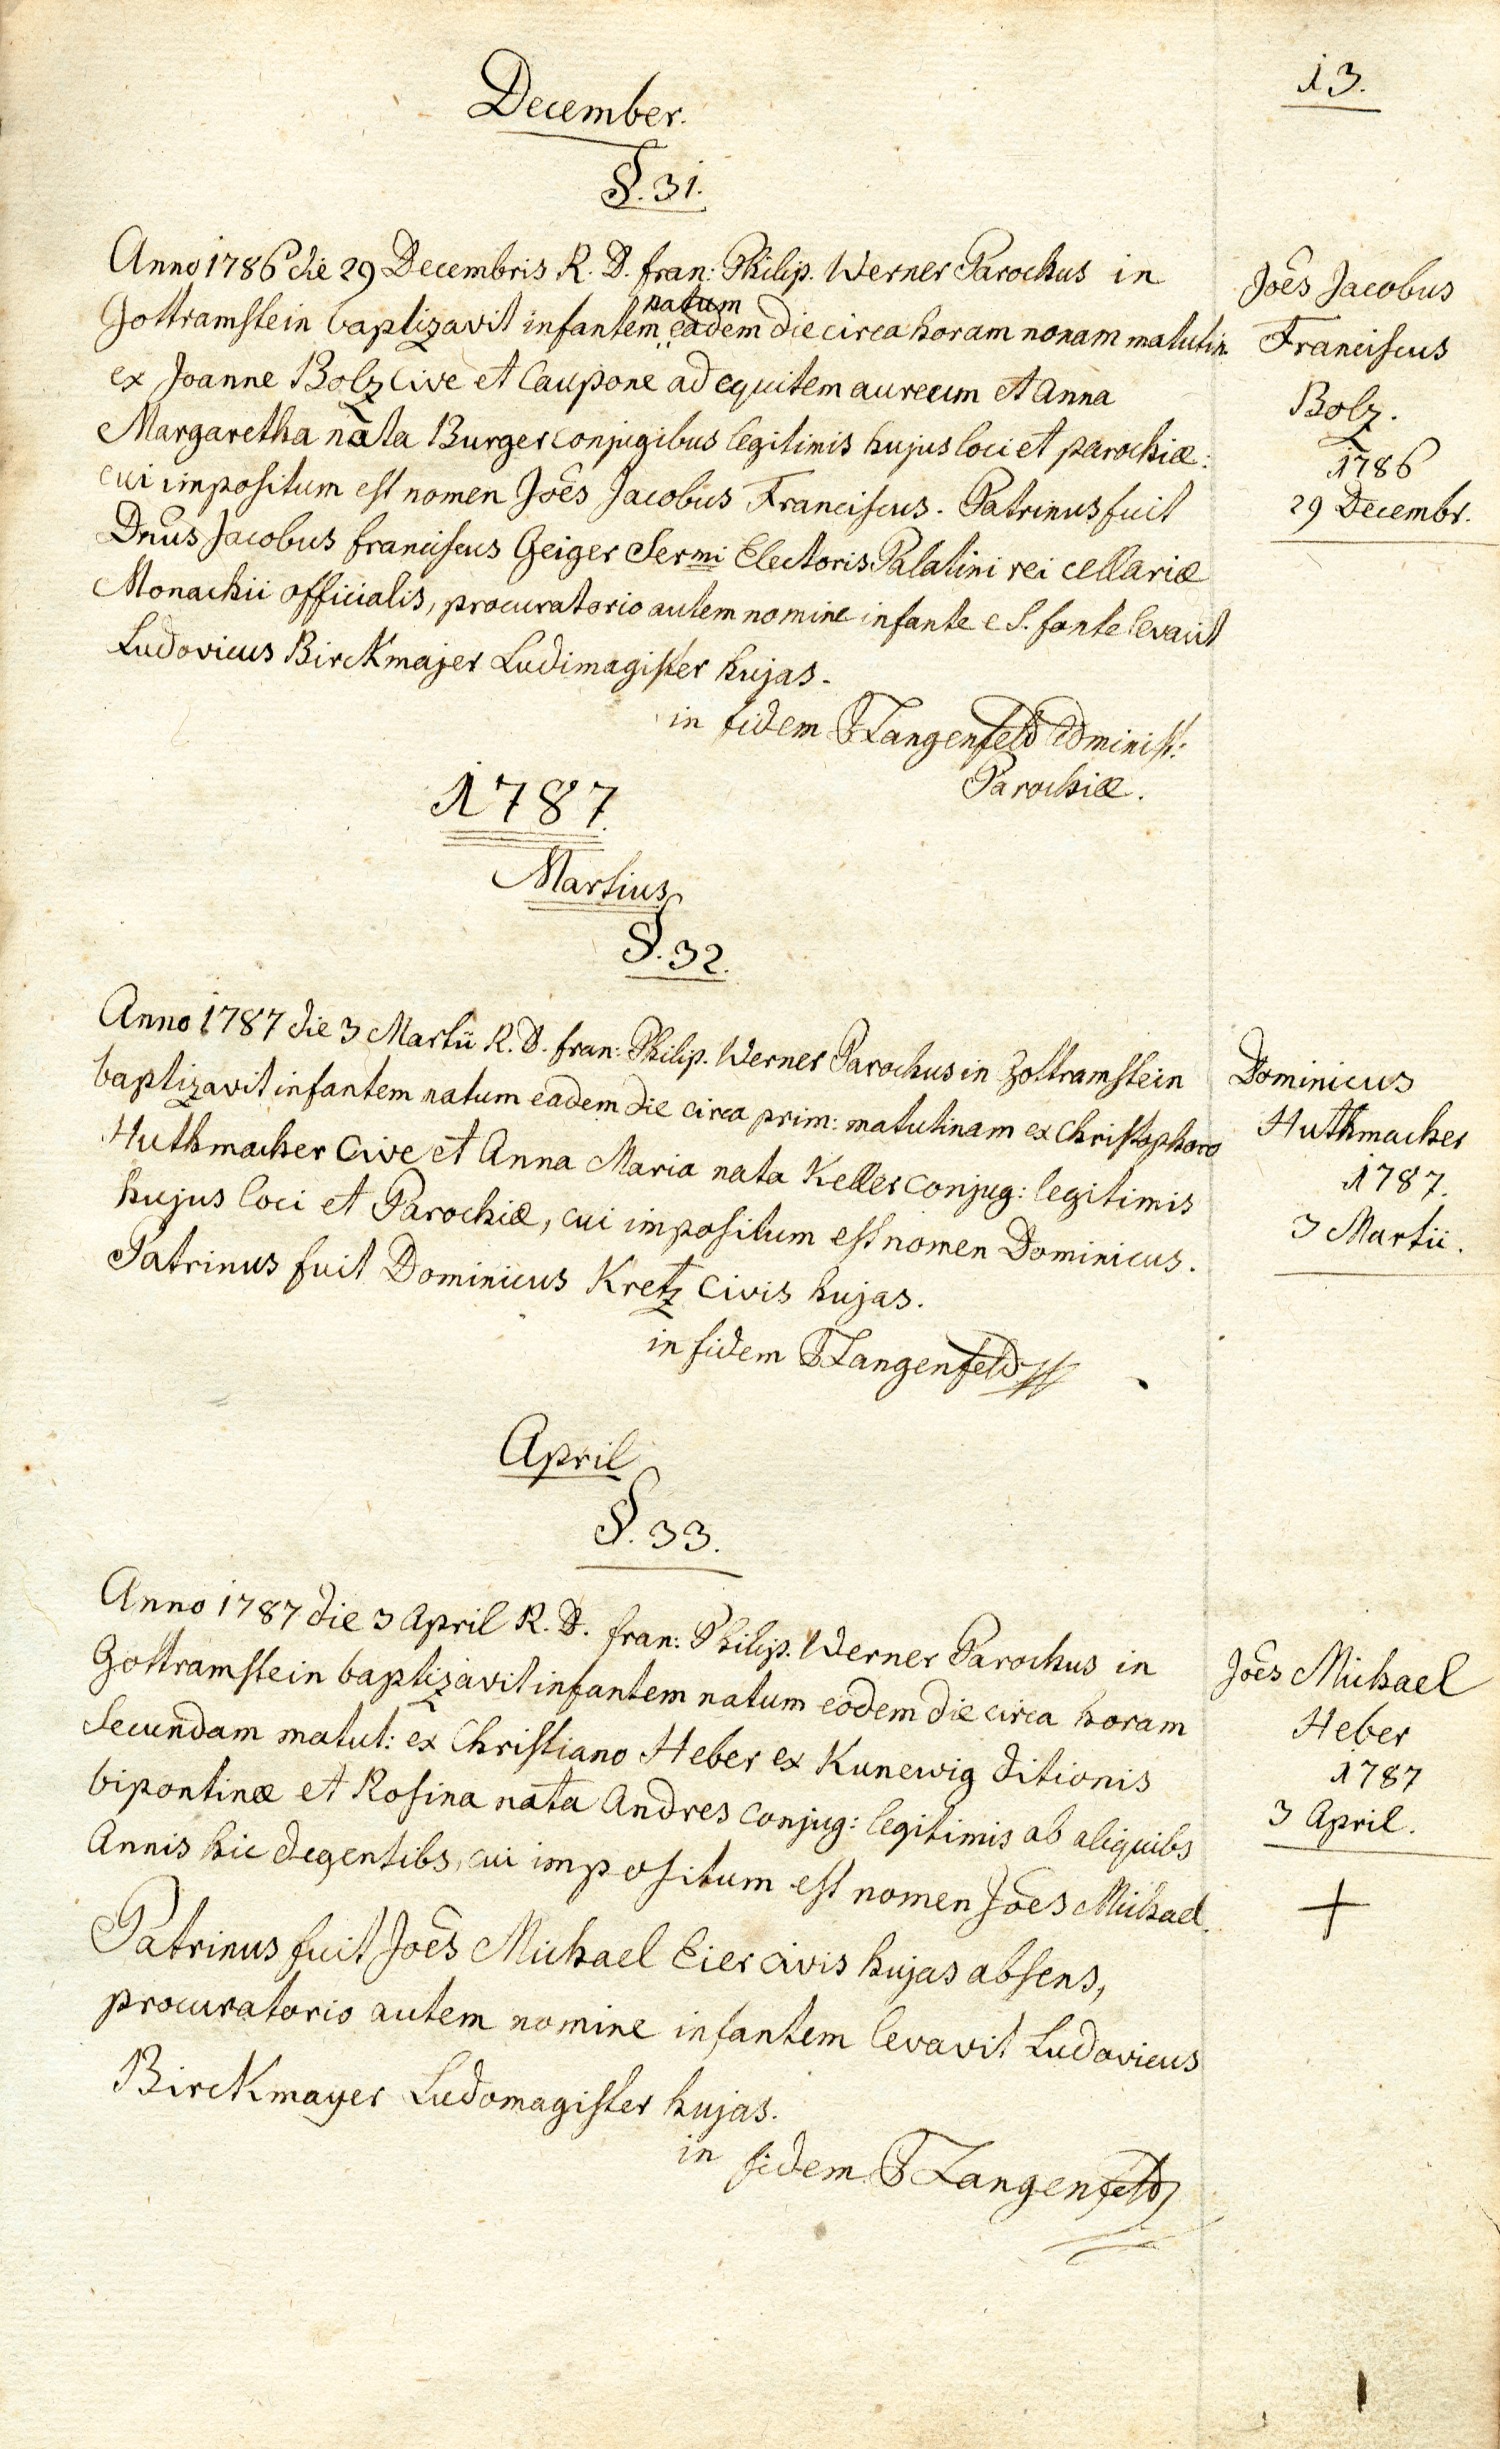 13.
December.
§. 31.
Anno 1786 die 29 Decembris R. D. fran: Philip. Werner Parochus in
natum
Gottramstein baptizavit infantem eadem die circa horam nonam matutin.
ex Joanne Bolz Cive et Caupone ad equitem aureum et Anna
Margaretha nata Burger conjugibus legitimis hujus loci et parochiæ:
cui impositum est nomen Joês Jacobus Franciscus. Patrinus fuit
Dnus Jacobus franciscus Geiger Sermi Electoris Palatini rei cellariæ
Monachii officialis, procuratorio autem nomine infante e S. fonte levavit
Ludovicus Birckmajer Ludimagister hujas.
in fidem Langenfeld Administ:
Parochiæ.
Joês Jacobus
Franciscus
Bolz.
1786
29 Decembr.
1787.
Martius
§. 32.
Anno 1787 die 3 Martii R. D. fran: Philip. Werner Parochus in Gottramstein
baptizavit infantem natum eadem die circa prim: matutinam ex Christophoro
Huthmacher Cive et Anna Maria nata Keller conjug: legitimis
hujus loci et Parochiæ, cui impositum est nomen Dominicus.
Patrinus fuit Dominicus Kretz Civis hujas.
in fidem Langenfeld
Dominicus
Huthmacher
1787.
3 Martii.
April
§. 33.
Anno 1787 die 3 April R. D. fran: Philip. Werner Parochus in
Gottramstein baptizavit infantem natum eodem die circa horam
Secundam matut: ex Christiano Heber ex Kunewig ditionis
bipontinæ et Rosina nata Andres conjug: legitimis ab aliquibs
Annis hic degentibs, cui impositum est nomen Joês Michael.
Patrinus fuit Joês Michael Eier civis hujas absens,
procuratorio autem nomine infantem levavit Ludovicus
Birckmayer Ludomagister hujas.
in fidem Langenfeld
Joês Michael
Heber
1787
3 April.
+